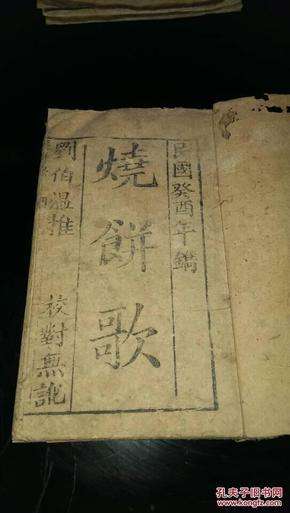 民國癸酉年鐫
燒餅歌
劉伯溫推 校對無訛
孔夫子旧书网
www.kongfz.com